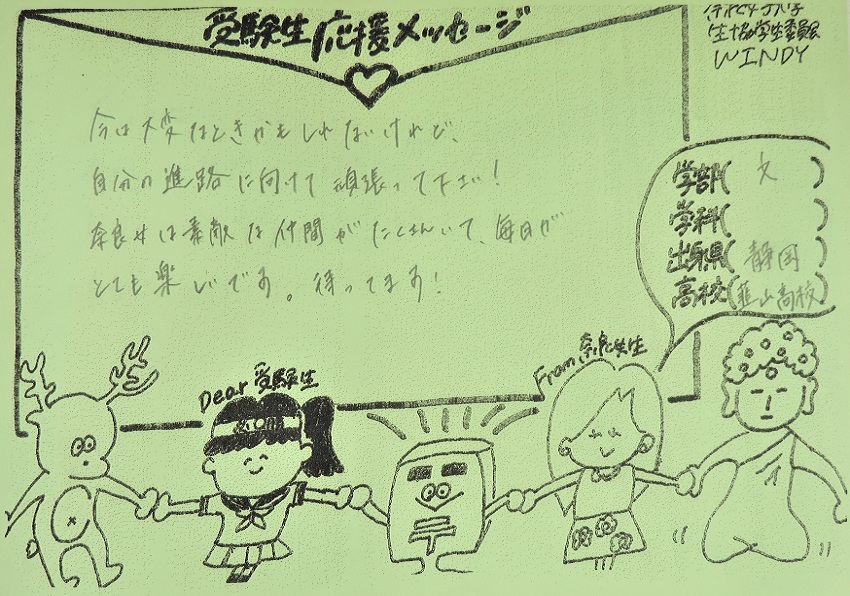 受験生応援メッセージ
生協学生委員会
WINDY
今は大変なときかもしれないけれど、
自分の進路に向けて頑張って下さい!
奈良女は素敵な仲間がたくさんいて、毎日が
とても楽しいです。待ってます!
学部(文)
学科( )
出身県(静岡)
高校(韮山高校)
Dear 受験生
From 奈良女生